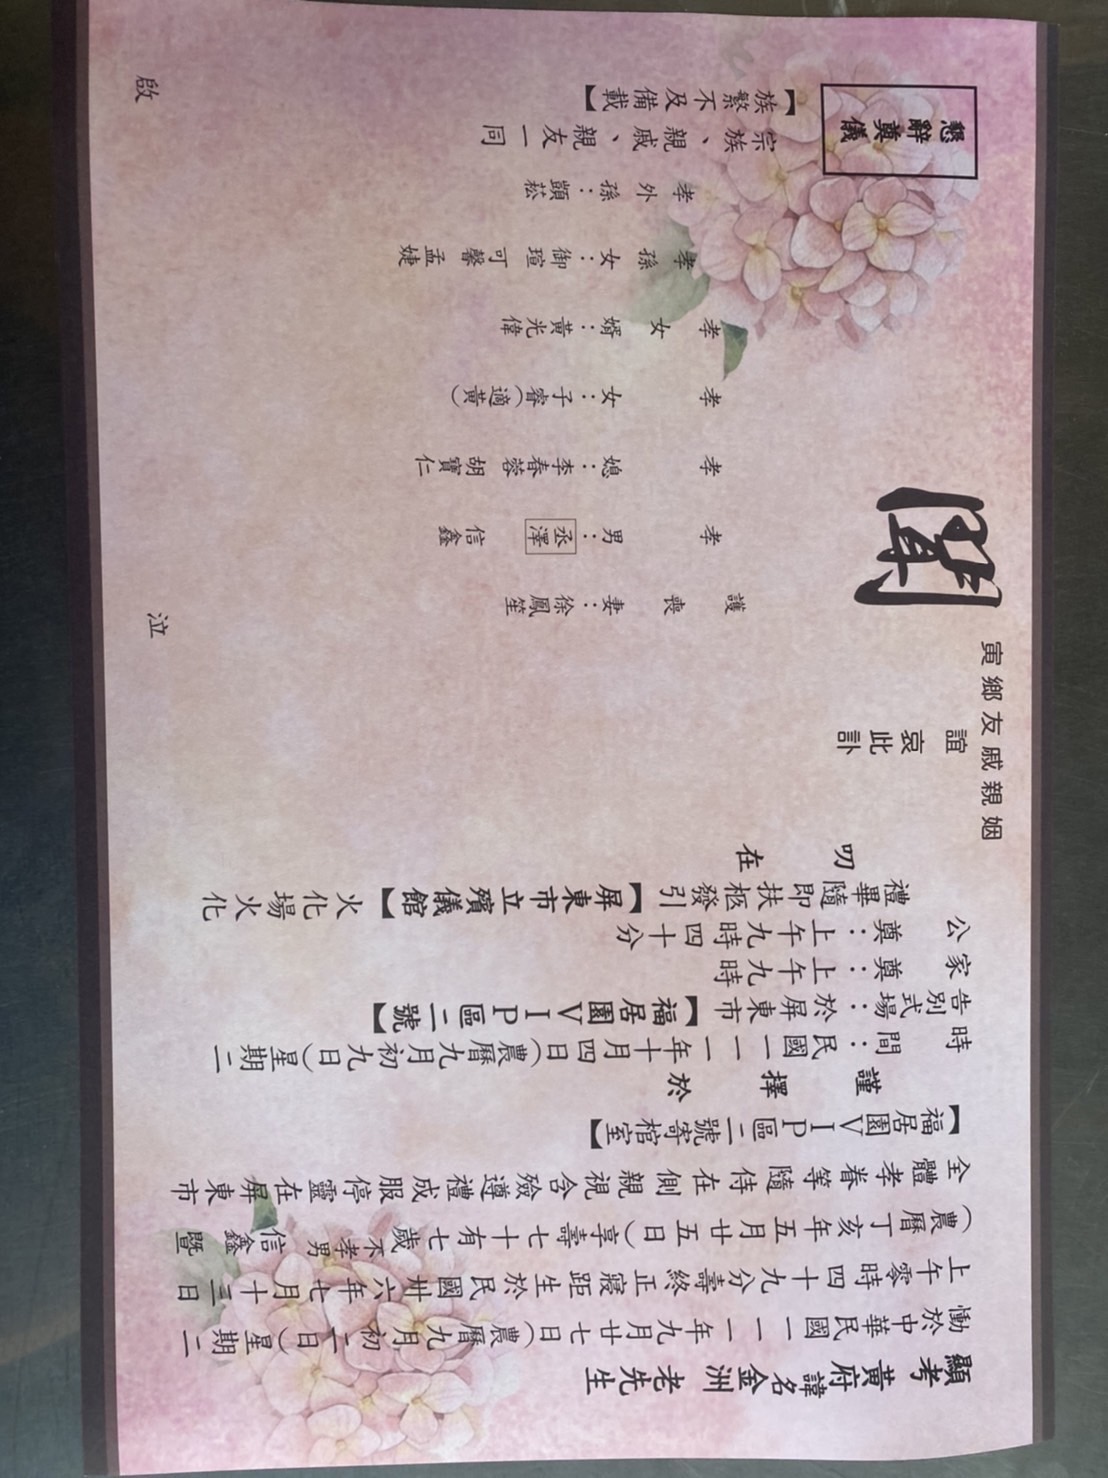 顯考黃府諱名金洲老先生
慟於中華民國一一一年九月廿七日(農曆九月初二日)星期二
上午零時四十九分壽終正寢距生於民國卅六年七月十三日
(農曆丁亥年五月廿五日)享壽七十有七歲不孝男信鑫暨
全體孝眷等隨侍在側親視含殮遵禮成服停靈在屏東市
【福居園VIP區二號寄棺室】
謹擇於
時間:民國一一一年十月四日(農曆九月初九日)星期二
告別式場:於屏東市【福居園VIP區二號】
家奠:上午九時
公奠:上午九時四十分
禮畢隨即扶柩發引【屏東市立殯儀館】火化場火化
叨在
姻親戚友鄉寅
誼哀此訃
聞
護喪妻:徐鳳笙
孝男:丞澤 信鑫
孝媳:李春蓉 胡寶仁
孝女:子睿(適黃)
孝女婿:黃光偉
孝孫女:御瑄 可馨 孟婕
孝外孫:顗菘
宗族、親戚、親友一同
【族繁不及備載】
泣啟
懇辭奠儀